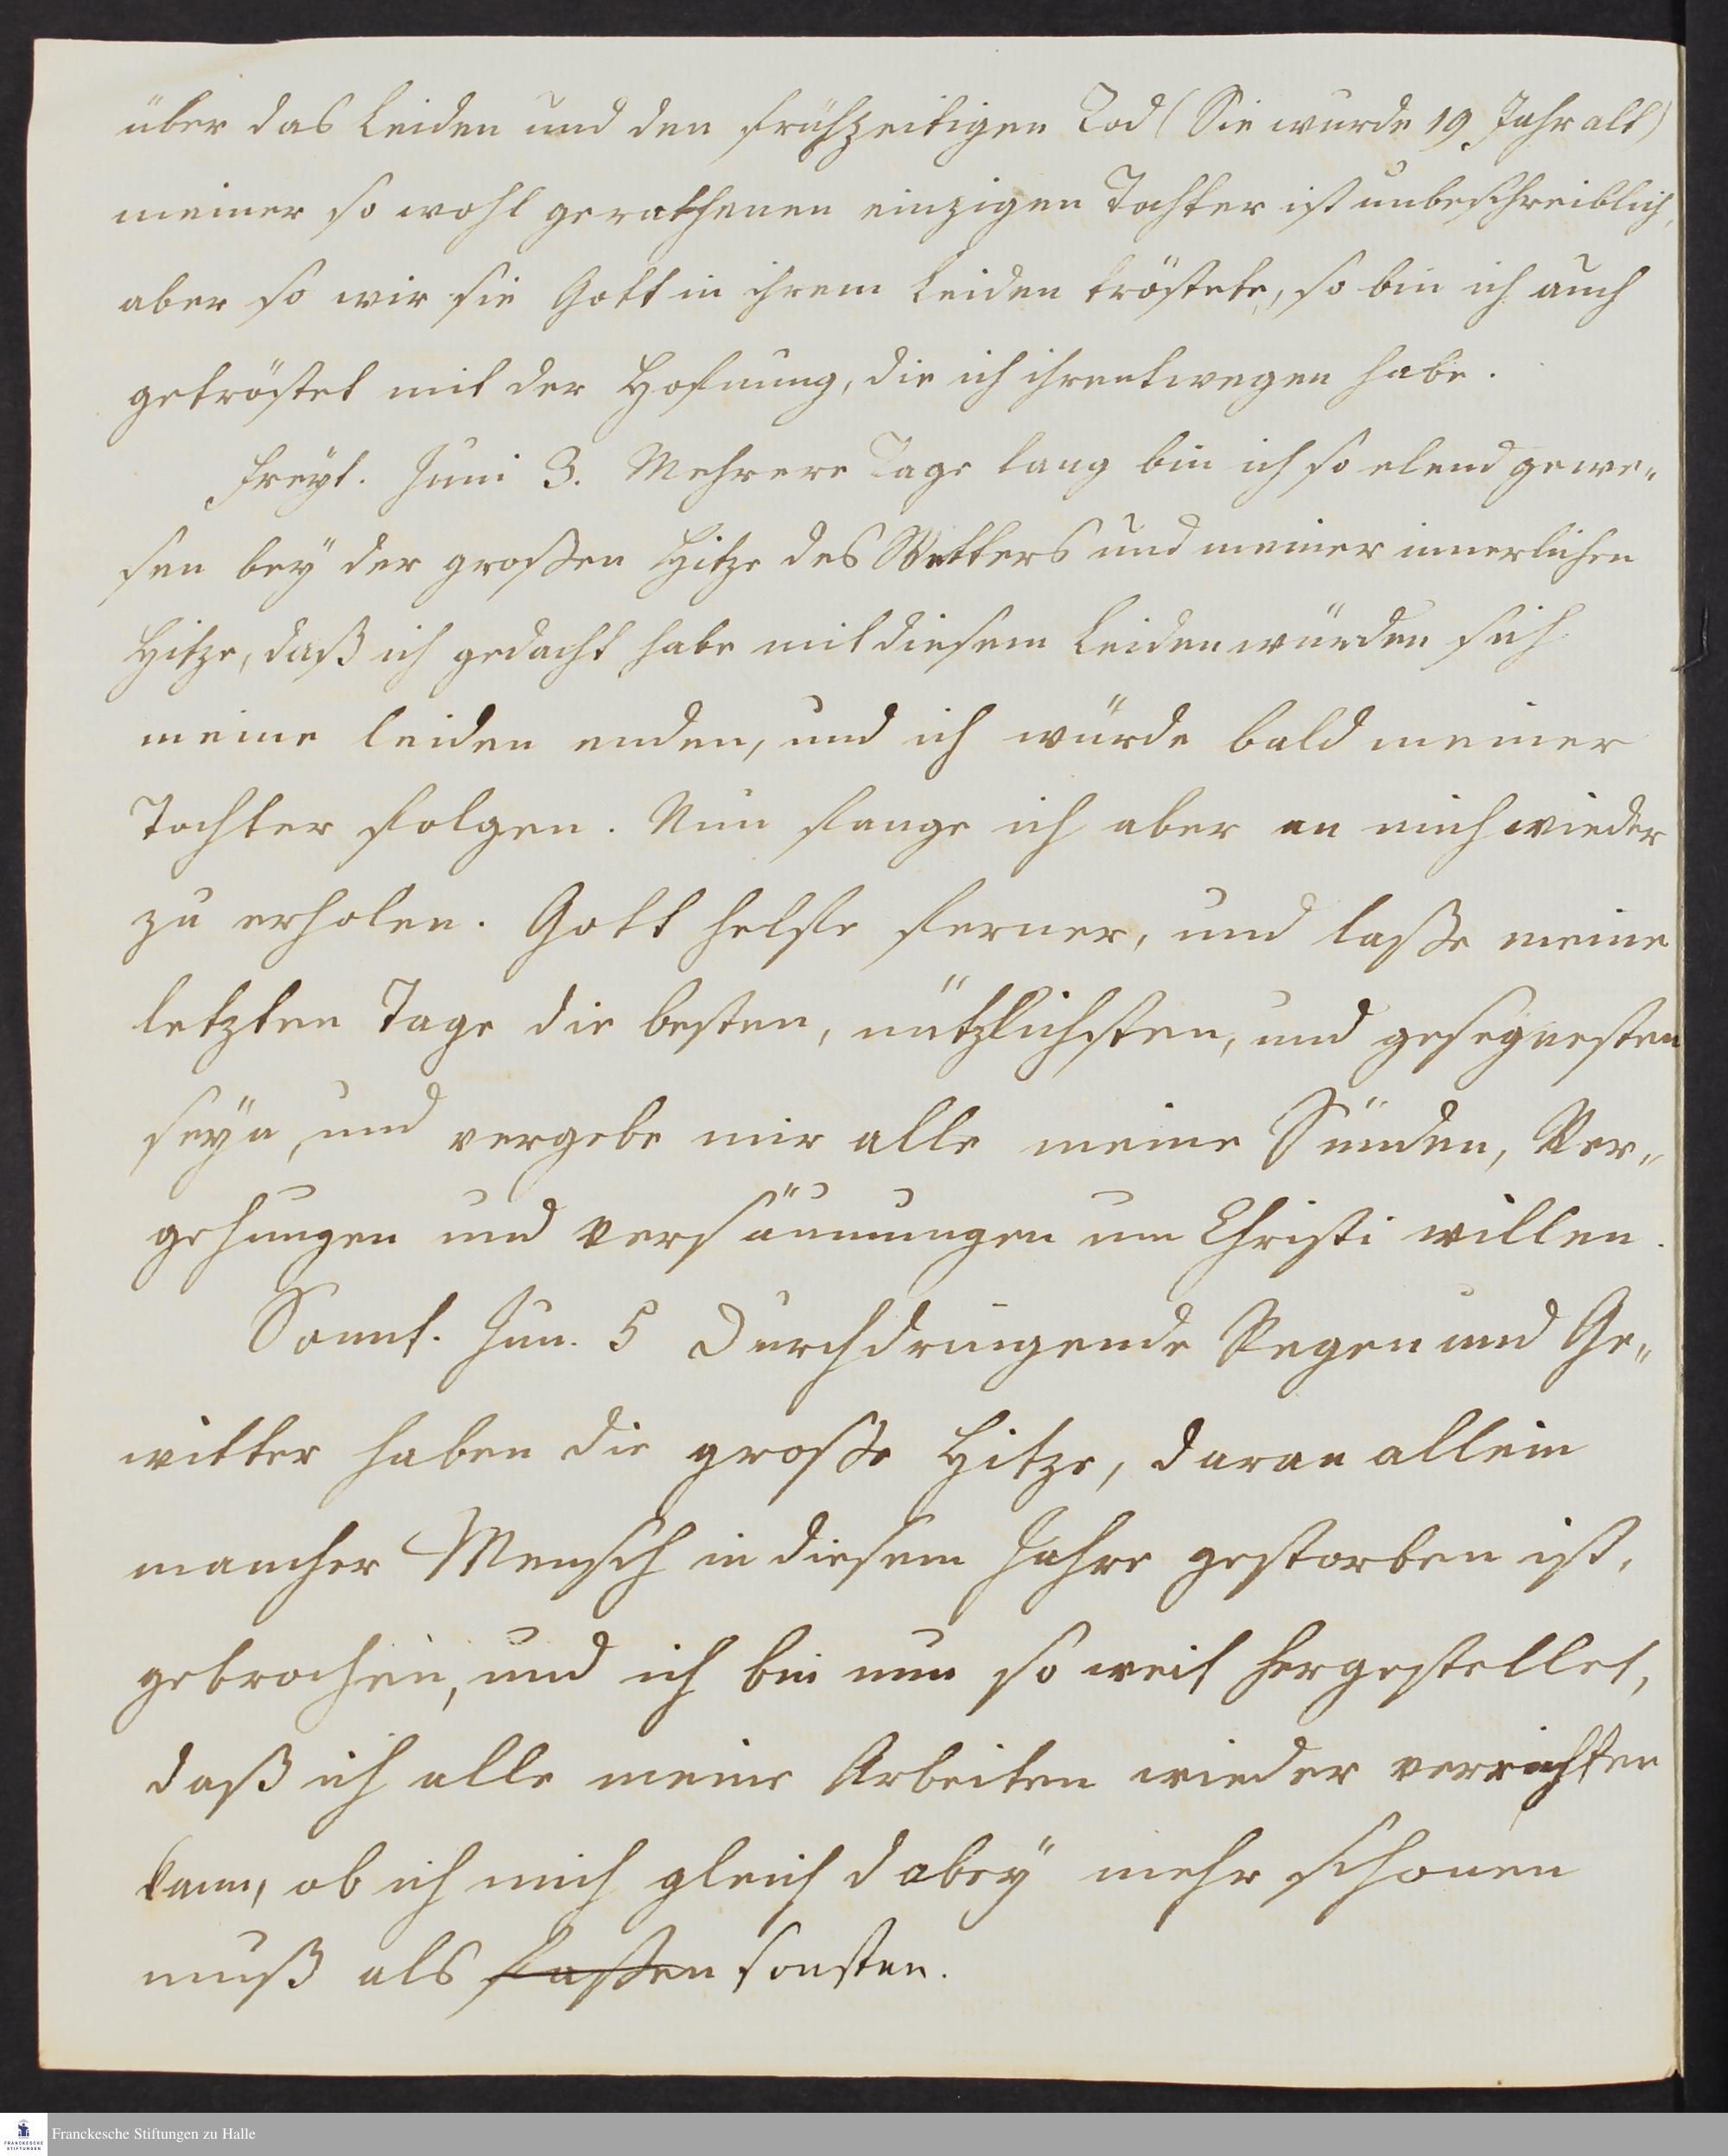 über das Leiden und den frühzeitigen Tod (Sie wurde 19 Jahr alt)
meiner so wohl gerathenen einzigen Tochter ist unbeschreiblich,
aber so wie sie Gott in ihrem Leiden tröstete, so bin ich auch
getröstet mit der Hofnung, die ich ihrentwegen habe.
Freyt. Juni 3. Mehrere Tage lang bin ich so elend gewe„
sen bey der großen Hitze des Wetters und meiner innerlichen
Hitze, daß ich gedacht habe mit diesem Leiden würden sich
meine Leiden enden, und ich würde bald meiner
Tochter folgen. Nun fange ich aber an mich wieder
zu erholen. Gott helfe ferner, und laße meine
letzten Tage die besten, nützlichsten, und gesegnesten
seyn, und vergebe mir alle meine Sünden, Ver„
gehungen und Versäumungen um Christi willen.
Sonnt. Jun. 5 Durchdringende Regen und Ge„
witter haben die große Hitze, daran allein
mancher Mensch in diesem Jahre gestorben ist,
gebrochen, und ich bin nun so weit hergestellet,
daß ich alle meine Arbeiten wieder verrichten
kann, ob ich mich gleich dabey mehr schonen
muß als sonsten.
Franckesche Stiftungen zu Halle
FRANCKESCHE
STIFTUNGEN